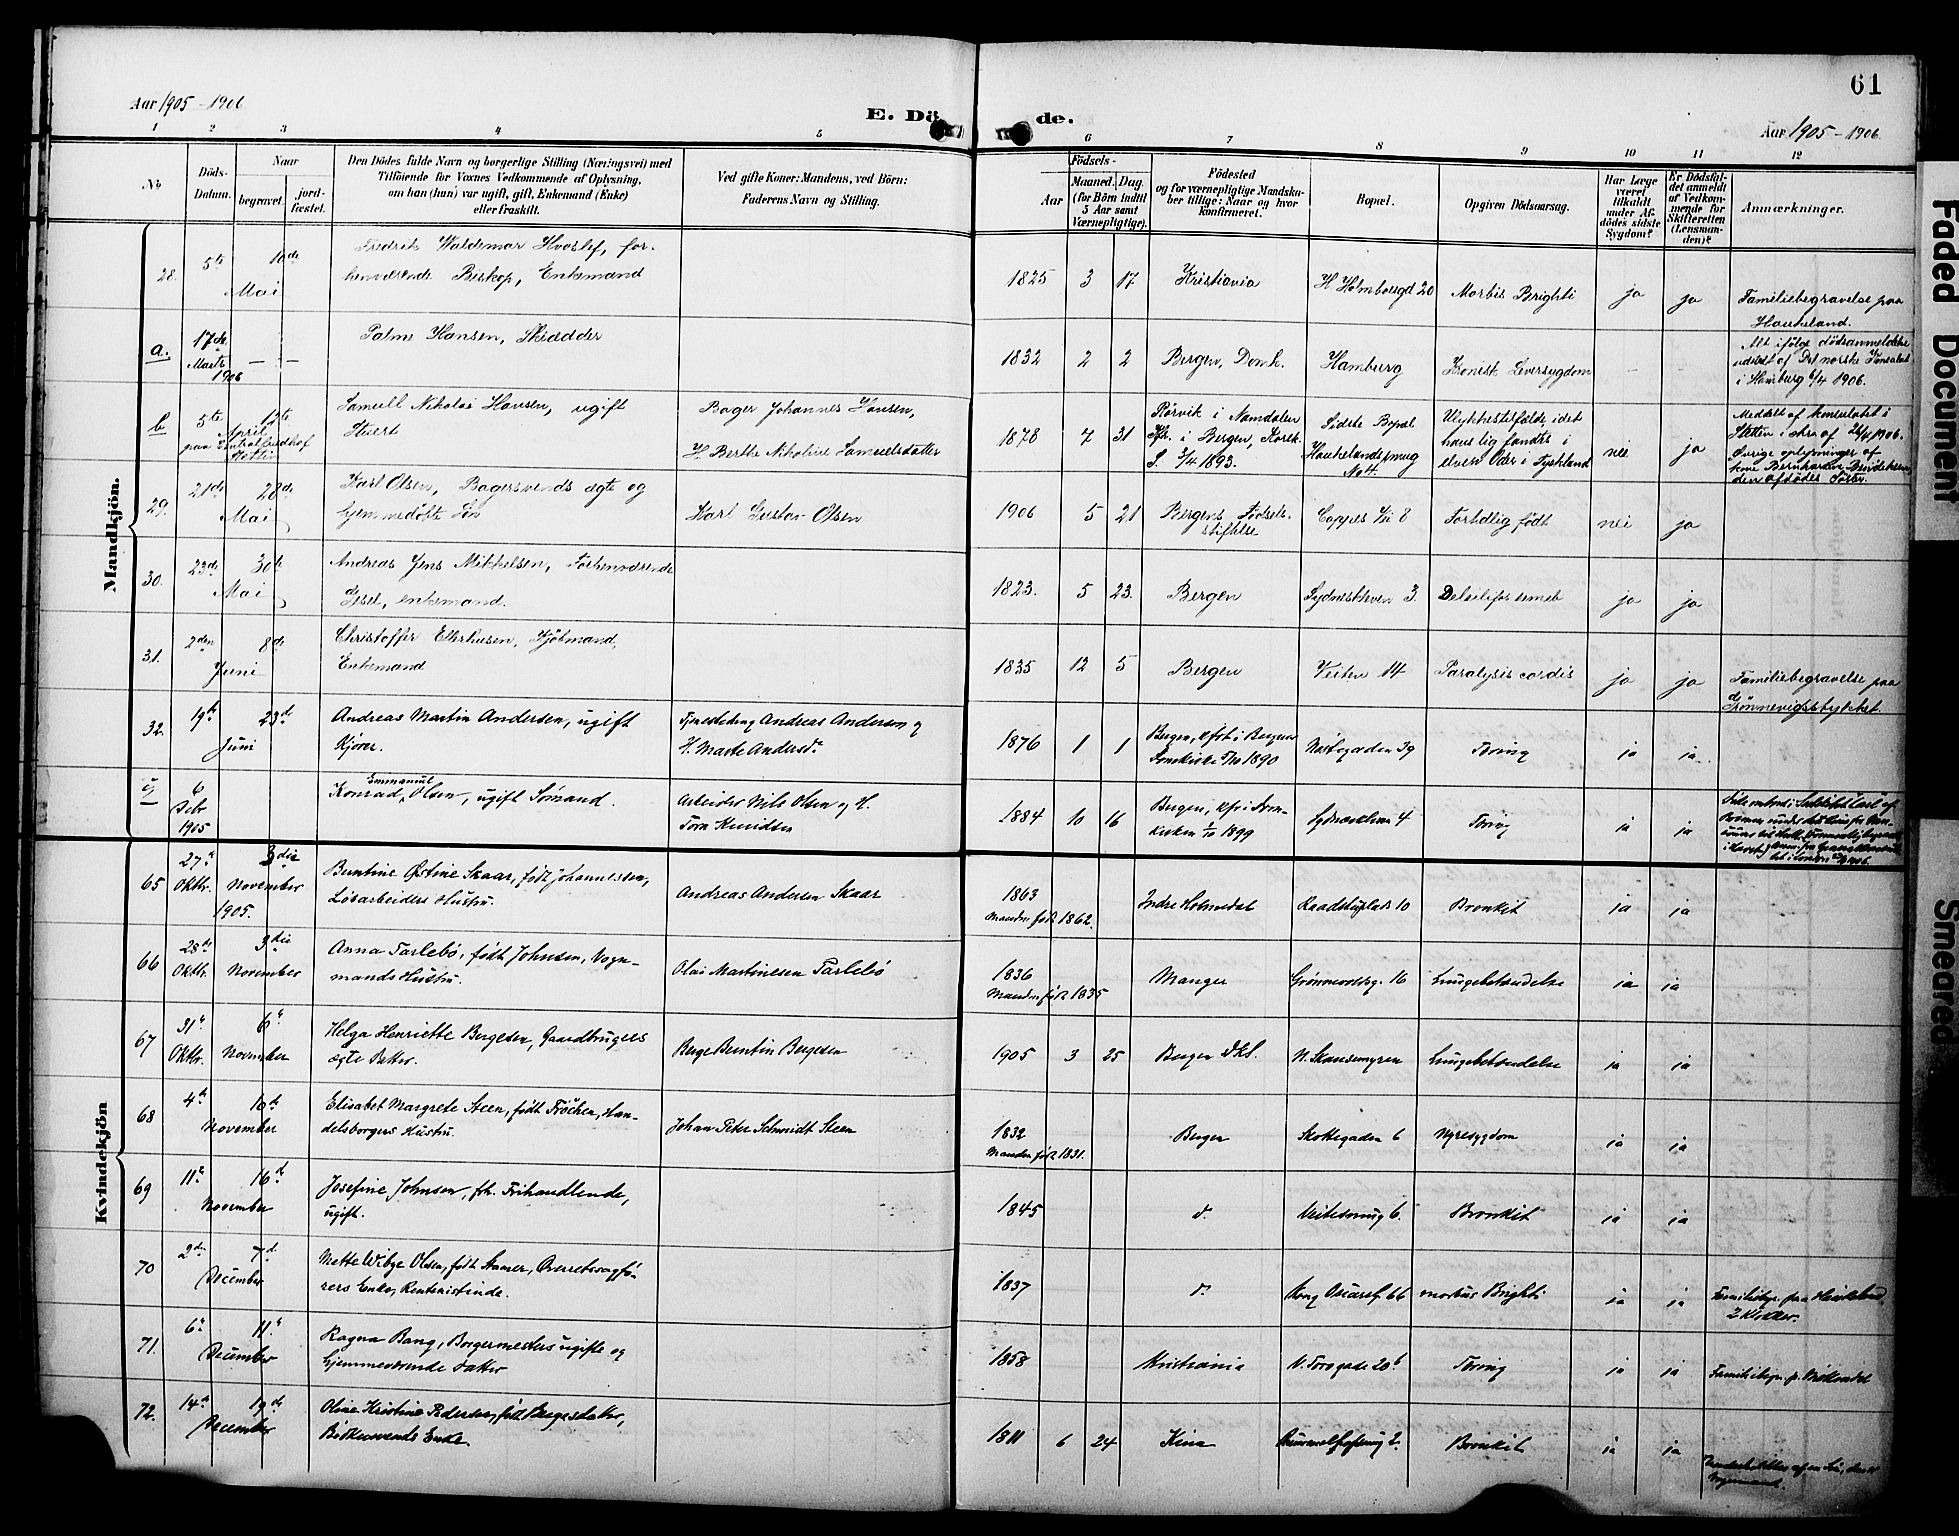 61
Aar 1905-1906
E. Dö de.
Aar 1905-1906.
1 2 3 4 5 6 7 8 9 10 11 12
No
Döds-
Datum.
Naar
begravet.
jord-
fæstet.
Den Dödes fulde Navn og borgerlige Stilling (Næringsvei) med
Tilföiende for Voxnes Vedkommende af Oplysning,
om han (hun) var ugift, gift, Enkemand (Enke)
eller fraskilt.
Ved gifte Koner: Mandens, ved Börn:
Faderens Navn og Stilling.
Födsels-
Aar
Maaned.
Dag.
(for Börn indtil
5 Aar samt
Værnepligtige).
Födested
og for værnepligtige Mandska-
ber tillige: Naar og hvor
konfirmeret.
Bopæl.
Opgiven Dödsaarsag.
Har Læge
været
tilkaldt
under Af-
dödes sidste
Sygdom?
Er Dödsfal-
det anmeldt
af Vedkom-
mende for
Skifteretten
(Lensman-
den)?
Anmærkninger.
Mandkjön.
28. 5te 10de Mai
Fredrik Waldemar Hvoslef, for-
henværende Biskop, Enkemand
1825 3 17 Kristiania H Holmboesgd 20 Morbis Brighti ja ja
Familiebegravelse paa
Haukeland.
a. 17de Marts 1906 — —
Palme Hansen, Skrædder
1832 2 2 Bergen, Domk. Hamburg Kronisk Leversygdom — —
Alt ifølge dødsanmeldelse
udstedt af Det norske Konsulat
i Hamburg 6/4 1906.
b 5te 12te April
paa Centralfriedhof
Stettin
Samuel Nikolai Hansen, ugift
Stuert
Bager Johannes Hansen,
H. Berthe Nikoline Samuelsdatter
1878 7 31
Rørvik i Namdalen
Kfr. i Bergen, Korsk.
S. 3/4 1893.
Sidste Bopæl
Haukelandsmug
No 4.
Ulykkestilfælde, idet
han lig fandtes i
elven Oder i Tyskland
nei ja
Meddelt af konsulatet i
Stettin i skr. af 26/4 1906.
Øvrige oplysninger af
den afdødes Søster.
29. 21de 28de Mai
Karl Olsen, Bagersvends ægte og
hjemmedøbte Søn
Karl Gustav Olsen
1906 5 21 Bergens Fødsels-
stiftelse
Coppes Vei 8 Fortidlig født nei ja
30. 23de 30te Mai
Andreas Jens Mikkelsen, Forhenværende
enkemand.
1823. 5 23. Bergen Sydneskleven 3. ja ja
31. 2den 8de Juni
Christoffer Ellerhusen, Kjøbmand,
Enkemand
1835 12 5 Bergen Veiten 14 Paralysis cordis ja ja
Familiebegravelse paa
Grønnevigsstykket.
32. 19de 23de Juni
Andreas Martin Andersen, ugift
Kjører.
Andreas Andersen og
H. Marte Andersdr
1876 1 1
Bergen, kfrt i Bergen
1890
Nøstegaden 39 Tæring ja ja
6 Febr 1905
Konrad Emmanuel Olsen, ugift Sømand.
Arbeider Nils Olsen og H.
Tora Knudsen
1884 10 16
Bergen, kfr i Dom-
kirken 1/10 1899
Sydneskleven 4 Tæring ja ja
Kvindekjön
65 27de Oktbr. 3die November 1905.
Berntine Østine Skaar, født Johannessen,
Løsarbeiders Hustru.
Andreas Andersen Skaar
1863
Manden født 1862.
Indre Holmedal Raadstuplads 10 Bronkit ja ja
66 28de Oktbr. 3die November
Anna Tarlebø, født Johnsen, Vogn-
mands Hustru.
Olai Martinesen Tarlebø
1836
Manden født 1835
Manger Grønnevoldsg. 16 Lungebetændelse ja ja
67 31te Oktbr. 6te November
Helga Henriette Bergesen, Gaardbrugers
ægte Datter.
Berge Berntin Bergesen
1905 3 25 Bergen Dks. N. Skansemyren Lungebetændelse ja ja
68 4de 10de November
Elisabet Margrete Steen, født Frøchen, Han-
delsborgers Hustru.
Johan Peter Schmidt Steen
1832
Manden født 1831.
Bergen Skottegaden 6 Nyresygdom ja ja
69 11te 16de November
Josefine Johnsen, fh. Frihandlende,
ugift.
1845 d. Veitesmug 6. Bronkit ja ja
70 2den 7de December
Mette Wibye Olsen, født Stamer, Overretssagfø-
rers Enke, Rentenistinde.
1837 d. Kong Oscarsg. 66 morbus Brighti ja ja
Familiebgr. paa Haukeland,
2 Klokker.
71. 6te 11te December
Ragna Bang, Borgermesters ugifte og
hjemmeværende Datter
1858 Kristiania V. Torvgade 20b Tæring ja ja
72. 14de 19de December
Oline Kristine Pedersen, født Børgesdatter,
Bødkersvends Enke.
1811 6 24 Kina Bronkit ja ja
Faded Document
Smeared